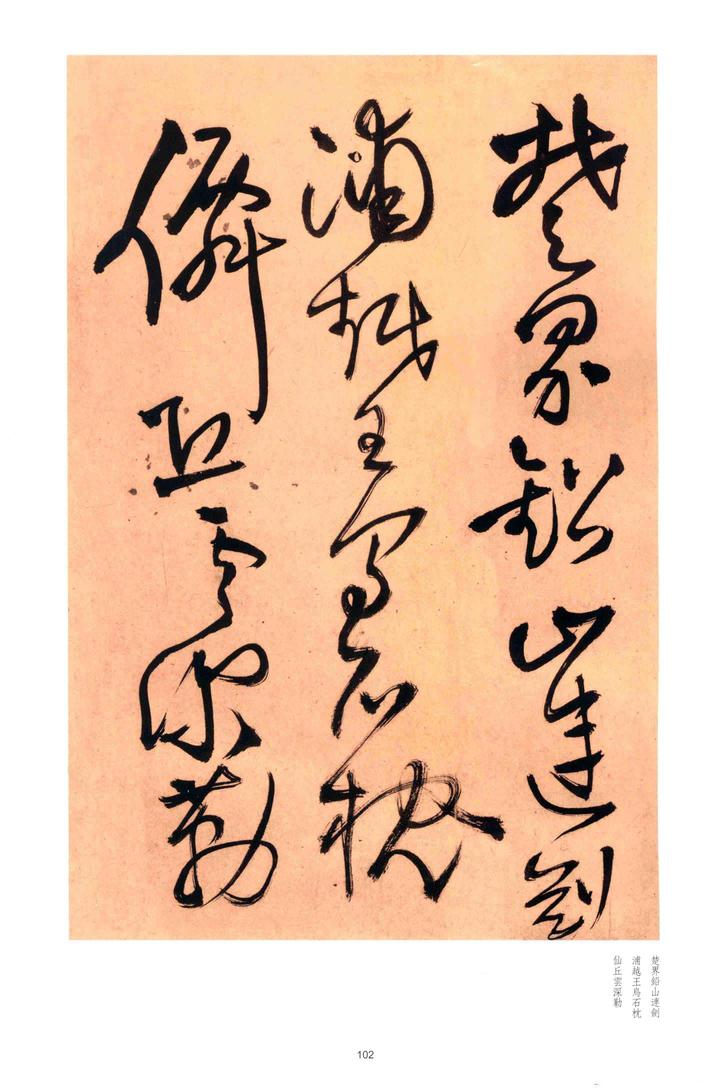 楚界鉛山連劍
浦越王烏石枕
僊丘雲深勒
楚界鉛山連劍
浦越王烏石枕
仙丘雲深勒
102